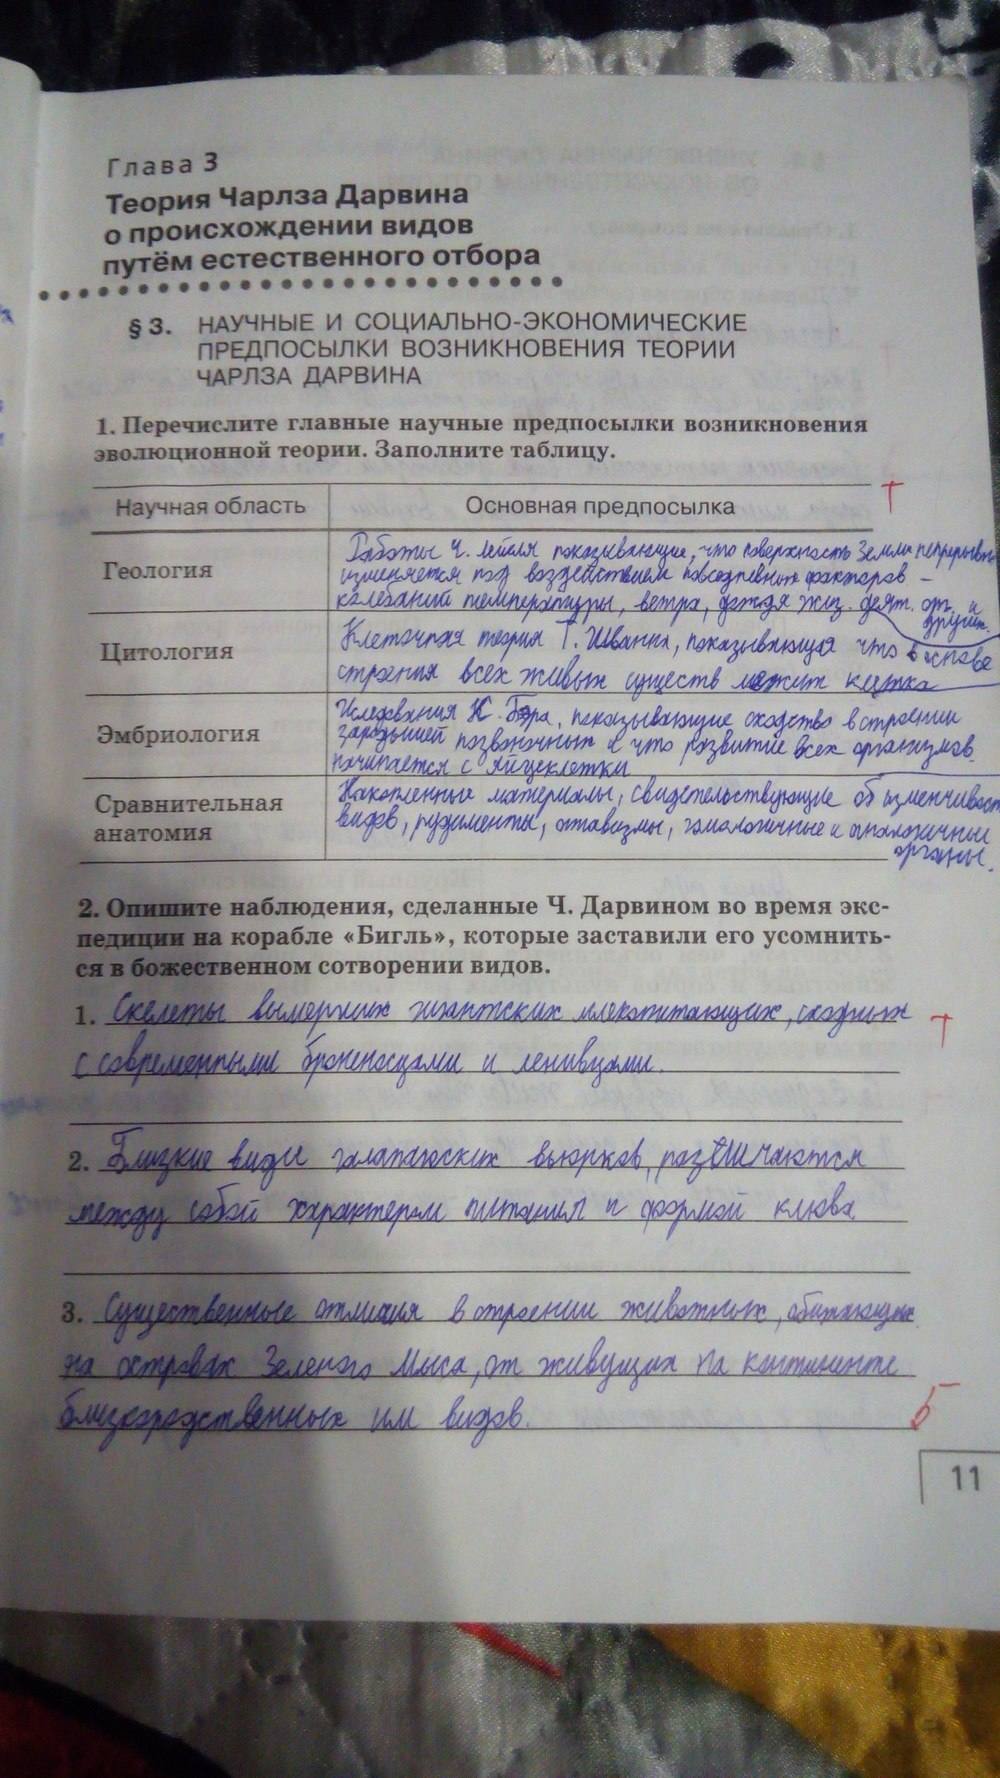 Глава 3
Теория Чарлза Дарвина
о происхождении видов
путём естественного отбора
§ 3. НАУЧНЫЕ И СОЦИАЛЬНО-ЭКОНОМИЧЕСКИЕ
ПРЕДПОСЫЛКИ ВОЗНИКНОВЕНИЯ ТЕОРИИ
ЧАРЛЗА ДАРВИНА
1. Перечислите главные научные предпосылки возникновения
эволюционной теории. Заполните таблицу.
Научная область Основная предпосылка
Геология
Работы Ч. Лейля показывающие, что поверхность Земли непрерывно
изменяется под воздействием повседневных факторов –
колебаний температуры, ветра, дождя жиз. деят. орг. и
других.
Цитология
Клеточная теория Т. Шванна, показывающая что в основе
строения всех живых существ лежит клетка
Эмбриология
Иследования К. Бэра, показывающие сходство в строении
зародышей позвоночных и что развитие всех организмов
начинается с яйцеклетки
Сравнительная
анатомия
Накопленные материалы, свидетельствующие об изменчивости
видов, рудименты, атавизмы, гомологичные и аналогичные
органы.
2. Опишите наблюдения, сделанные Ч. Дарвином во время экс-
педиции на корабле «Бигль», которые заставили его усомнить-
ся в божественном сотворении видов.
1. Скелеты вымерших гигантских млекопитающих, сходных
с современными броненосцами и ленивцами.
2. Близкие виды галапагосских вьюрков, различаются
между собой характером питания и формой клюва
3. Существенные отличия в строении животных, обитающих
на островах Зеленого Мыса, от живущих на континенте
близкородственных им видов.
5
11